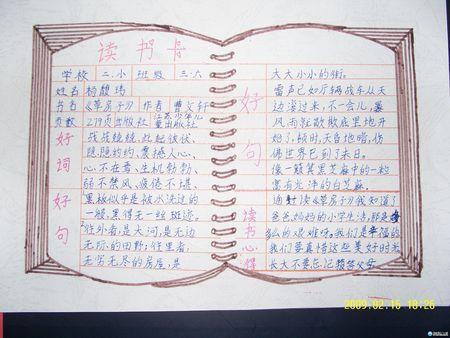 读书卡
学校 二.小 班级 三.六
姓名 杨馥玮
书名 《草房子》 作者 曹文轩
页数 279页 出版社 江苏少年儿童出版社
好词
战战兢兢、此起彼伏、
隐隐约约、震撼人心、
心不在焉、生机勃勃、
弱不禁风、疲倦不堪、
好句
黑板似乎是被水洗过的
一般,黑得无一丝斑迹。
往外看是大河,是无边
无际的田野;往里看,
无穷无尽的房屋,是
大大小小的街。
好句
雷声已如万辆战车从天
边滚过来,不一会儿,暴
风雨就歇斯底里地开
始了,顿时,天昏地暗,仿
佛世界已到了末日。
像一颗簸黑芝麻中的一粒
富有光泽的白芝麻。
读书心得
通过读《草房子》我知道了
爸爸妈妈的小学生活,那是多
么的艰难呀。我们是幸福的
我们要真惜这些美好时光
长大不要忘记报答父母
2009.02.16 18:26